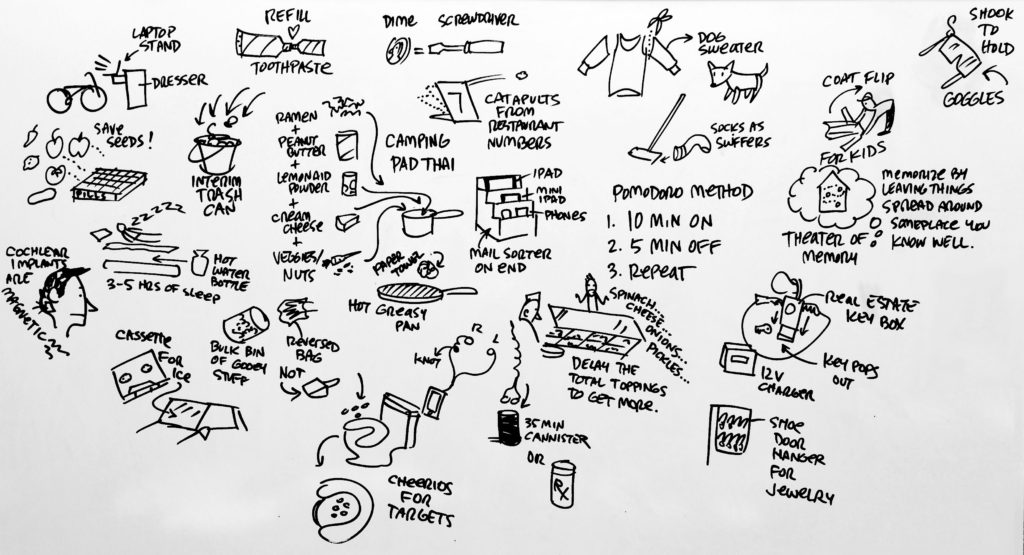 LAPTOP
STAND
DRESSER
REFILL
TOOTHPASTE
DIME
SCREWDRIVER
DOG
SWEATER
SHOOK
TO
HOLD
GOGGLES
SAVE
SEEDS!
PILLS
INTERIM
TRASH
CAN
RAMEN
+
PEANUT
BUTTER
+
LEMONAID
POWDER
+
CREAM
CHEESE
+
VEGGIES/
NUTS
CAMPING
PAD THAI
7
CATAPULTS
FROM
RESTAURANT
NUMBERS
SOCKS AS
SWIFFERS
COAT FLIP
FOR KIDS
IPAD
MINI
IPAD
PHONES
MAIL SORTER
ON END
POMODORO METHOD
1. 10 MIN ON
2. 5 MIN OFF
3. REPEAT
MEMORIZE BY
LEAVING THINGS
SPREAD AROUND
SOMEPLACE YOU
KNOW WELL.
THEATER OF
MEMORY
ZZZZZ
HOT
WATER
BOTTLE
3-5 HRS OF SLEEP
COCHLEAR
IMPLANTS
ARE
MAGNETIC
PAPER
TOWEL
HOT GREASY
PAN
CASSETTE
FOR
ICE
BULK BIN
OF GOOEY
STUFF
REVERSED
BAG
NOT
KNOT
R
L
SPINACH...
CHEESE...
ONIONS...
PICKLES...
DELAY THE
TOTAL TOPPINGS
TO GET MORE.
35 MIN
CANNISTER
OR
RX
REAL ESTATE
KEY BOX
KEY POPS
OUT
12V
CHARGER
SHOE
DOOR
HANGER
FOR
JEWELRY
CHEERIOS
FOR
TARGETS